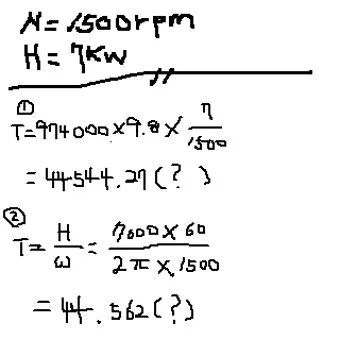 N=1500rpm
H=7KW
①
T=974000×9.8×7/1500
=44544.27(? )
②
T=H/ω=7000×60/2π×1500
=44.562(?)